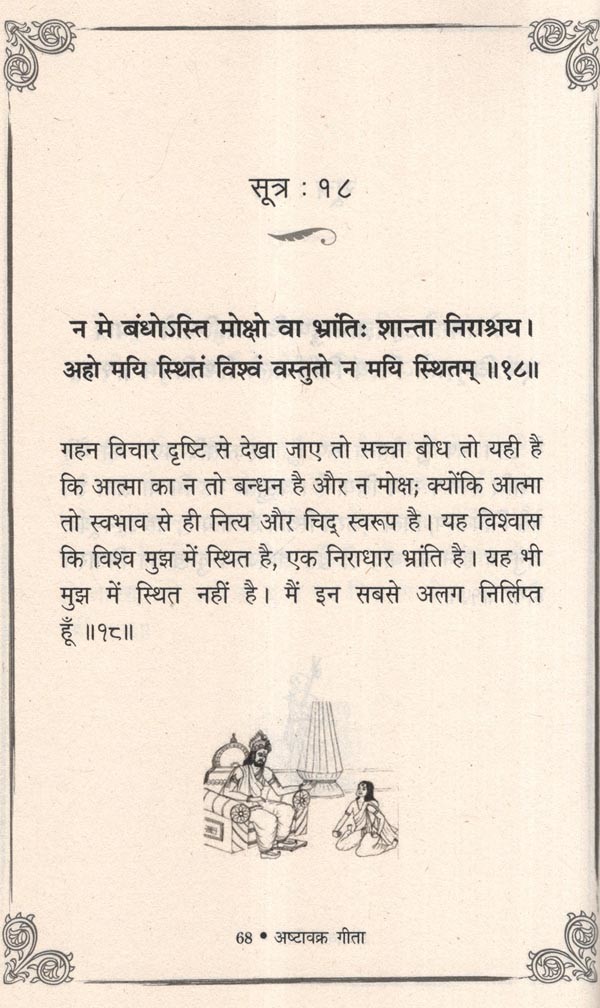 सूत्र : १८
न मे बंधोऽस्ति मोक्षो वा भ्रांतिः शान्ता निराश्रय।
अहो मयि स्थितं विश्वं वस्तुतो न मयि स्थितम् ॥१८॥
गहन विचार दृष्टि से देखा जाए तो सच्चा बोध तो यही है
कि आत्मा का न तो बन्धन है और न मोक्ष; क्योंकि आत्मा
तो स्वभाव से ही नित्य और चिद् स्वरूप है। यह विश्वास
कि विश्व मुझ में स्थित है, एक निराधार भ्रांति है। यह भी
मुझ में स्थित नहीं है। मैं इन सबसे अलग निर्लिप्त
हूँ ॥१८॥
68 • अष्टावक्र गीता